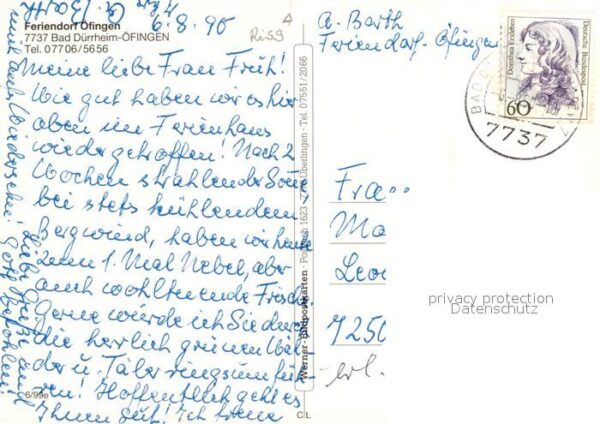 Feriendorf Öfingen
7737 Bad Dürrheim-ÖFINGEN
Tel. 07706/5656
6.8.90
Meine liebe Frau Früh!
Wie gut haben wir es hier
oben im Ferienhaus
wieder getroffen! Nach 2
Wochen strahlender Sonne
bei stets kühlendem
Bergwind, haben wir heute
zum 1. Mal Nebel, aber
auch wohltuende Frische.
Gerne würde ich Sie durch
die herlich grünen Wäl-
der u. Täler ringsum füh-
ren! Hoffentlich geht es
Ihnen gut! Ich
Liebe Grüße und
und aufs Wiedersehen!
Gott befohlen!
Ihre G. Barth
6/99e
Werner-Bildpostkarten · Postfach 1623 · 7770 Überlingen · Tel. 07551/2066
CL
A. Barth
Feriendorf-Öfingen
Dorothea Erxleben
Deutsche Bundespost
60
BAD DÜ
7737
Fra
Ma
Leo
7250
privacy protection
Datenschutz